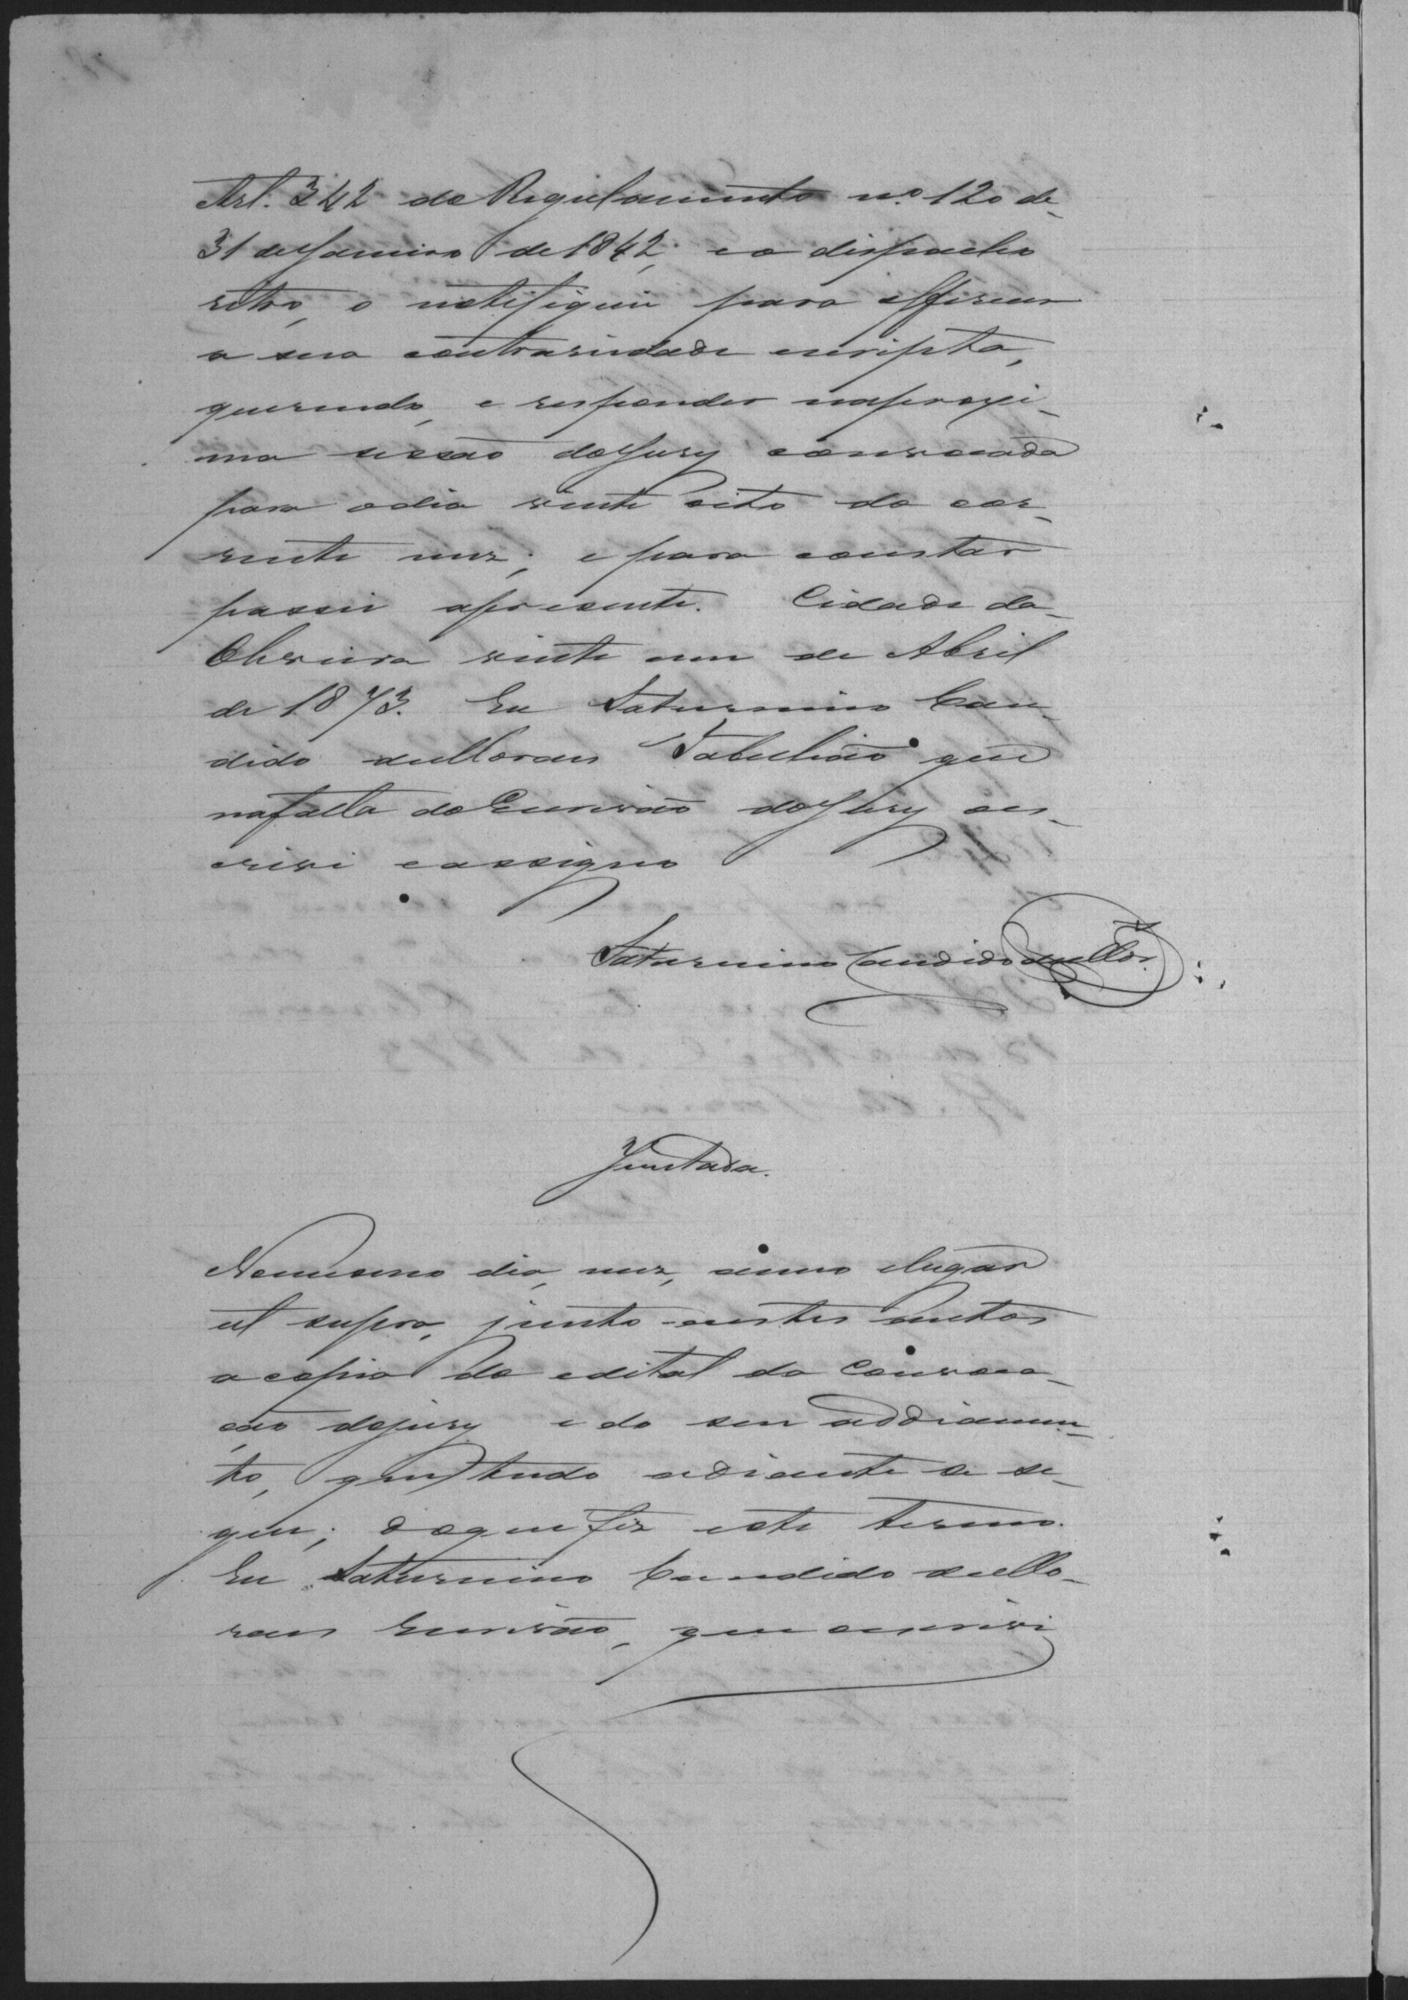 Art. 342 do Regulamento n.º 120 de
31 de Janeiro de 1842, e o despacho
retro, o notifiquei para offerecer
a sua contrariedade escripta,
querendo, e responder na proxi-
ma sessão do Jury convocada
para o dia vinte oito do cor-
rente mez; e para constar
passei a presente. Cidade da
Oliveira vinte um de Abril
de 1873. Eu Saturnino Can-
dido de Moraes Tabelião que
na falta do Escrivão do Jury es-
crivi e assigno
Saturnino Candido de Mor.
Juntada.
No mesmo dia, mez, anno e lugar
ut supra, junto a estes autos
a copia do edital da Convoca-
ção do jury e do seu addiamen-
to, que tudo adiante se se-
gue; do que fiz este termo.
Eu Saturnino Candido de Mo-
raes Escrivão, que escrivi